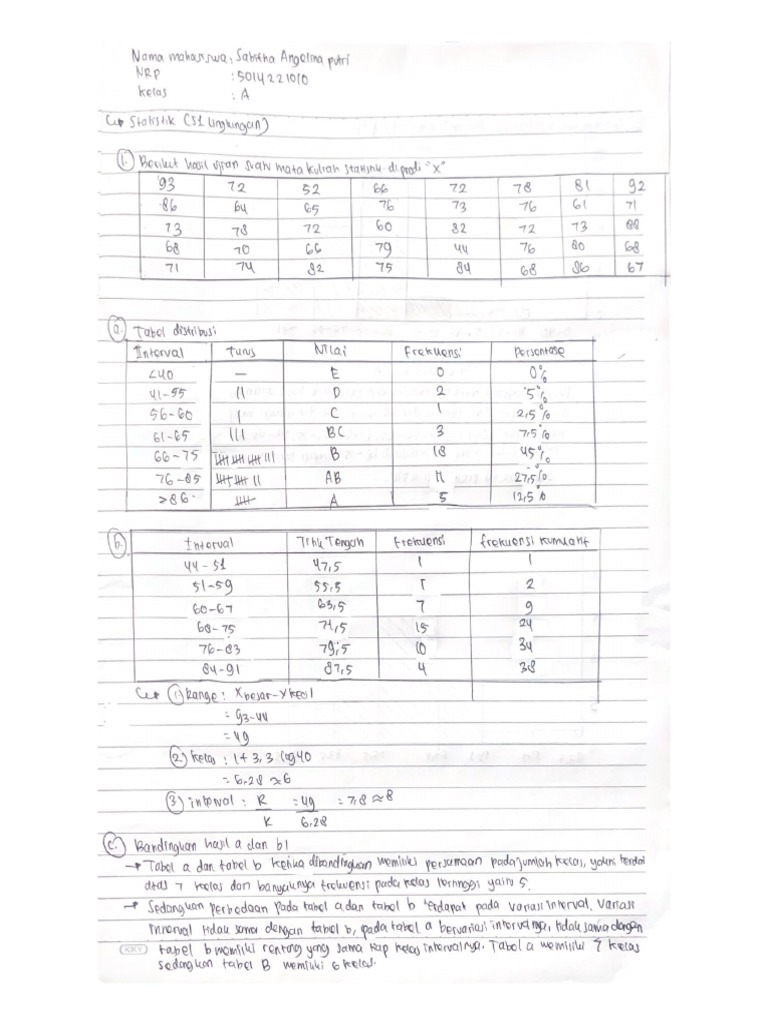 Nama mahasiswa: Sabitha Angelina putri
NRP : 5014221010
Kelas : A
Statistik (S1 Lingkungan)
1. Berikut hasil ujian suatu mata kuliah statistik di prodi "X"
93 72 52 66 72 78 81 92
86 64 65 76 73 76 61 71
73 78 72 60 82 72 73 88
68 70 66 79 44 76 80 68
71 74 82 75 84 68 86 67
a. Tabel distribusi
Interval Turus Nilai Frekuensi Persentase
<40 — E 0 0%
41-55 || D 2 5%
56-60 | C 1 2,5%
61-65 ||| BC 3 7,5%
66-75 |||| |||| |||| ||| B 18 45%
76-85 |||| |||| || AB 11 27,5%
>86 |||| A 5 12,5%
b. Interval Titik Tengah Frekuensi Frekuensi Kumulatif
44-51 47,5 1 1
51-59 55,5 1 2
60-67 63,5 7 9
68-75 71,5 15 24
76-83 79,5 10 34
84-91 87,5 4 38
1) Range : Xbesar - Xkecil
= 93-44
= 49
2) Kelas : 1 + 3,3 log 40
= 6.28 ≈ 6
3) interval : R = 49 = 7,8 ≈ 8
K 6.28
c. Bandingkan hasil a dan b!
→ Tabel a dan tabel b ketika dibandingkan memiliki persamaan pada jumlah kelas, yakni terdiri
atas 7 kelas dan banyaknya frekuensi pada kelas tertinggi yaitu 5.
→ Sedangkan perbedaan pada tabel a dan tabel b terdapat pada variasi interval. Variasi
interval tidak sama dengan tabel b, pada tabel a bervariasi intervalnya, tidak sama dengan
tabel b memiliki rentang yang sama tiap kelas intervalnya. Tabel a memiliki 7 kelas
sedangkan tabel B memiliki 6 kelas.
KKY